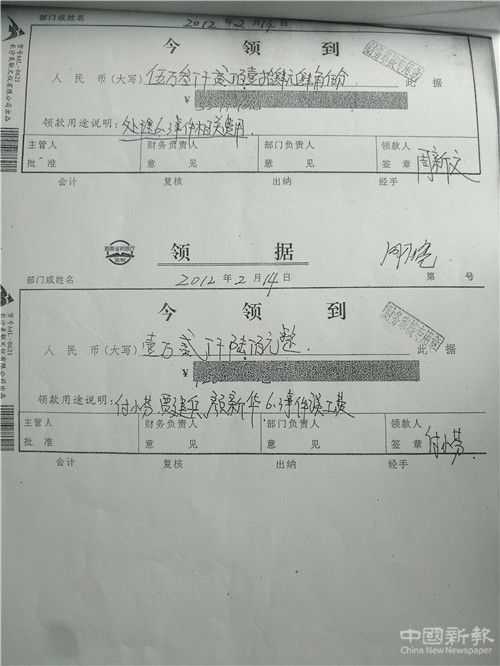 部门或姓名 2012年2月14日
今 领 到
人 民 币（大写）伍万叁仟贰佰壹拾肆元肆角伍分 此 据
¥
财务报账专用章
领款用途说明：处理6.事件相关费用
主管人 财务负责人 部门负责人 领款人
批 准 意 见 意 见 签 章 周新文
会计 复核 出纳 经手
领 据
部门或姓名 2012年2月14日 第 号
今 领 到
人 民 币（大写）壹万贰仟陆佰元整 此 据
¥
财务报账专用章
领款用途说明：付小芬 贾建兵 颜新华 6.事件误工费
主管人 财务负责人 部门负责人 领款人
批 准 意 见 意 见 签 章 付小芬
会计 复核 出纳 经手
中國新報
China New Newspaper